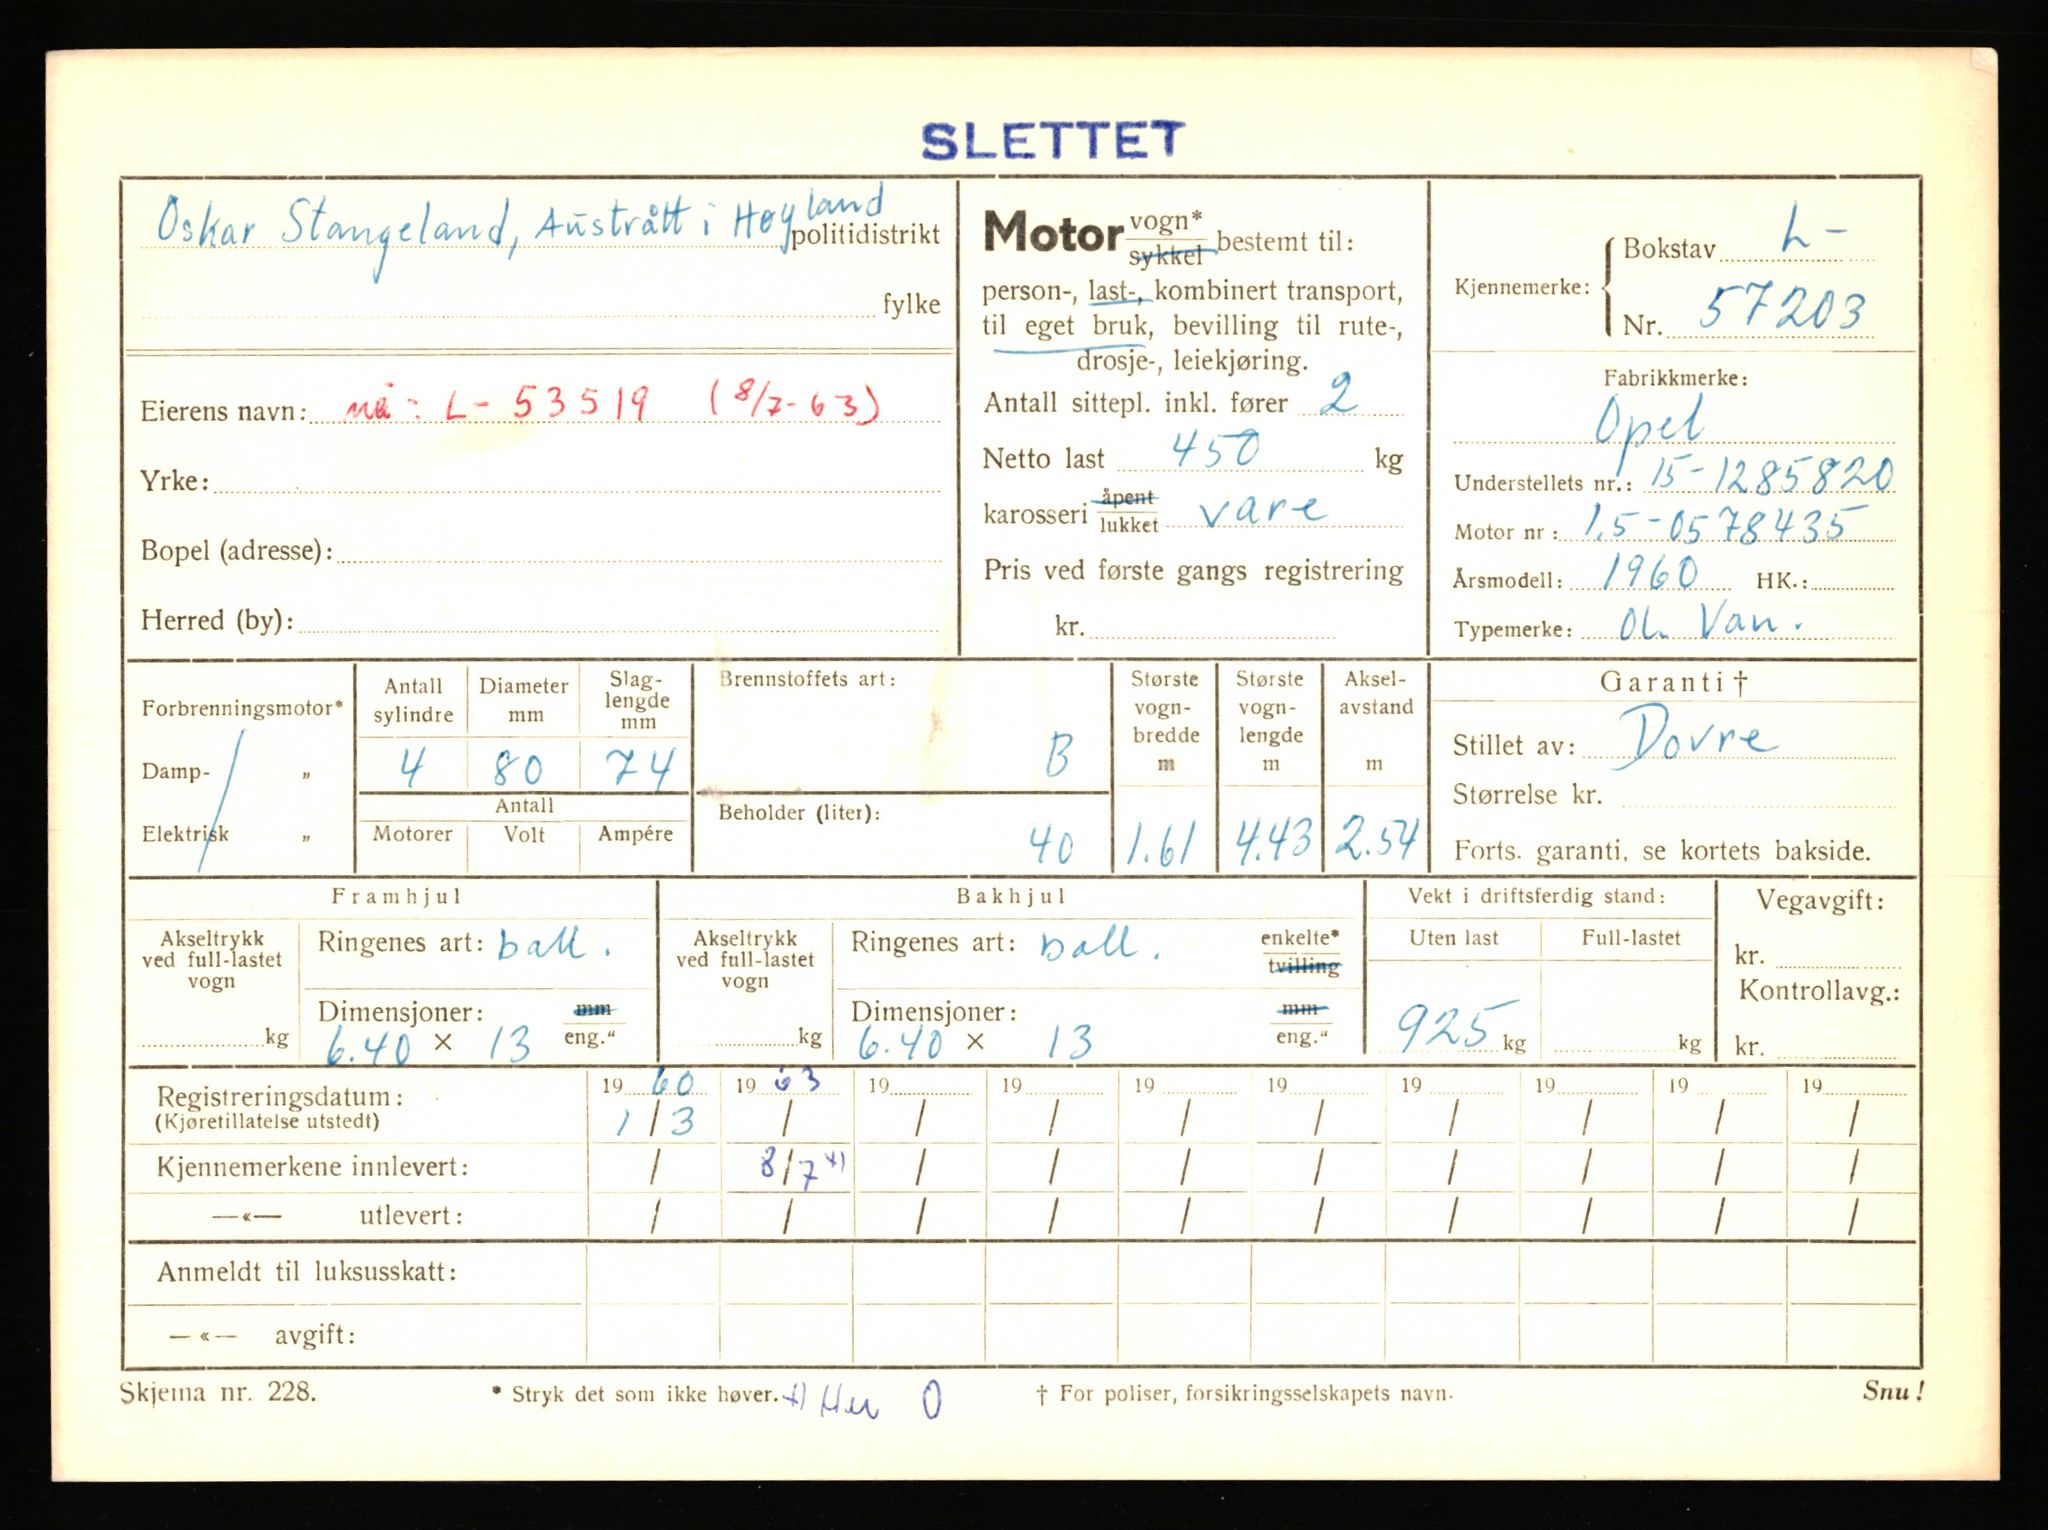 SLETTET
Oskar Stangeland, Austrått i Høyland
politidistrikt
fylke
Eierens navn: nå: L- 53519 (8/7-63)
Yrke:
Bopel (adresse):
Herred (by):
Motor vogn* sykkel bestemt til:
person-, last-, kombinert transport,
til eget bruk, bevilling til rute-,
drosje-, leiekjøring.
Antall sittepl. inkl. fører 2
Netto last 450 kg
karosseri åpent lukket vare
Pris ved første gangs registrering
kr.
Kjennemerke: Bokstav L-
Nr. 57203
Fabrikkmerke:
Opel
Understellets nr.: 15-1285820
Motor nr: 1,5-0578435
Årsmodell: 1960 HK.:
Typemerke: Ol. Van.
Forbrenningsmotor*
Damp- „
Elektrisk „
Antall sylindre
4
Diameter mm
80
Slaglengde mm
74
Antall
Motorer Volt Ampére
Brennstoffets art:
B
Beholder (liter):
40
Største vogn-bredde m
1.61
Største vogn-lengde m
4.43
Aksel-avstand m
2.54
Garanti †
Stillet av: Dovre
Størrelse kr.
Forts. garanti, se kortets bakside.
Framhjul
Akseltrykk ved full-lastet vogn
kg
Ringenes art: ball.
Dimensjoner: mm eng.“
6.40 × 13
Bakhjul
Akseltrykk ved full-lastet vogn
kg
Ringenes art: ball. enkelte* tvilling
Dimensjoner: mm eng.“
6.40 × 13
Vekt i driftsferdig stand:
Uten last Full-lastet
925 kg kg
Vegavgift:
kr.
Kontrollavg.:
kr.
Registreringsdatum: 19 60 19 63 19 19 19 19 19 19 19 19
(Kjøretillatelse utstedt) 1/3 / / / / / / / / /
Kjennemerkene innlevert: / 8/7 x) / / / / / / / /
—«— utlevert: / / / / / / / / / /
Anmeldt til luksusskatt:
—«— avgift:
Skjema nr. 228. * Stryk det som ikke høver. x) O † For poliser, forsikringsselskapets navn. Snu!